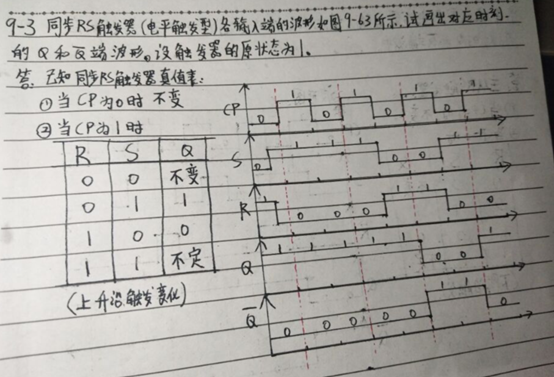 9-3 同步RS触发器(电平触发型)各输入端的波形如图9-63所示,试画出对应时刻.
的 Q 和 Q̅ 端波形。设触发器的原状态为1。
答: 已知同步RS触发器真值表:
①当 CP为0时 不变
②当CP为1时
R S Q
0 0 不变
0 1 1
1 0 0
1 1 不定
(上升沿触发变化)
CP 0 1 0 1 0 1 0 1
S 0 1 1 1 1 0 0 1 1
R 1 0 0 0 0 1 1 0 0
Q 1 1 1 1 1 0 0 1
Q̅ 0 0 0 0 0 1 1 0